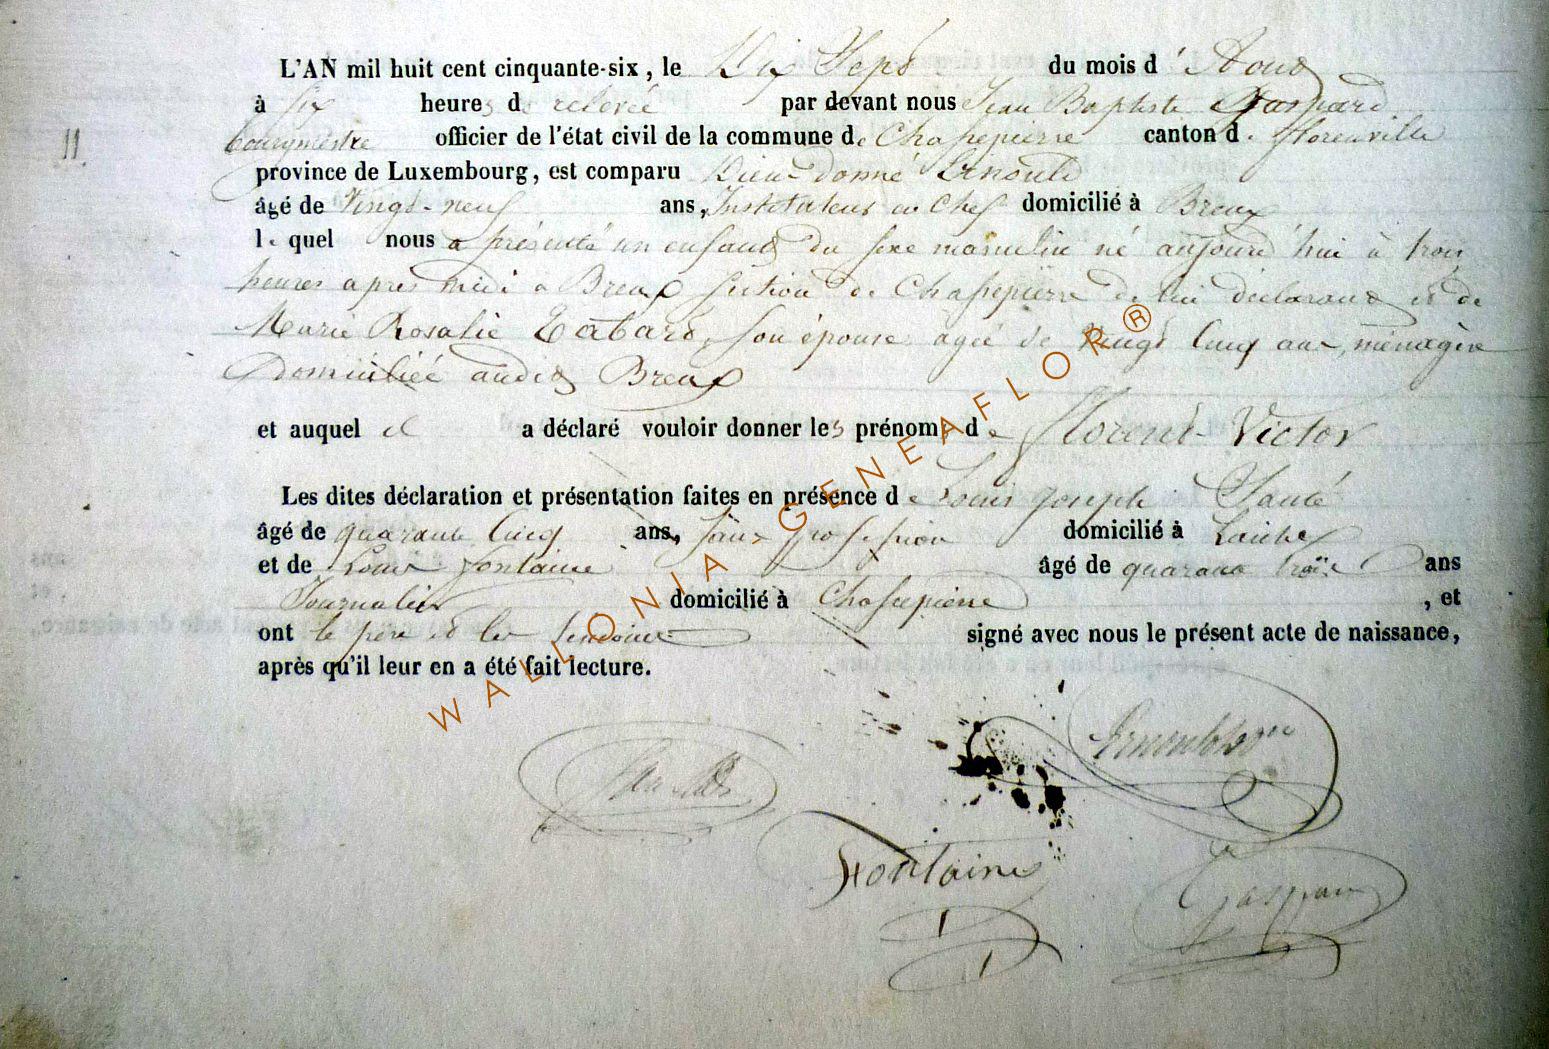 L'AN mil huit cent cinquante-six, le Dix Sept du mois d' Aout
à Six heures de relevée par devant nous Jean Baptiste Gaspard
11
bourgmestre officier de l'état civil de la commune de Chassepierre canton de florenville
province de Luxembourg, est comparu Dieu-donné Ernould
âgé de Vingt-neuf ans, Instituteur en Chef domicilié à Breux
lequel nous a présenté un enfant du sexe masculin né aujourd'hui à trois
heures après midi à Breux section de Chassepierre de lui déclarant et de
Marie Rosalie Tabard, son épouse agée de Vingt Cinq ans, ménagère
Domiciliée audit Breux
et auquel il a déclaré vouloir donner les prénoms de Florent-Victor
Les dites déclaration et présentation faites en présence de Louis Joseph
âgé de quarante Cinq ans, sans profession domicilié à Laiche
et de Louis Fontaine âgé de quarante trois ans
Journalier domicilié à Chassepierre , et
ont le père et les temoins signé avec nous le présent acte de naissance,
après qu'il leur en a été fait lecture.
WALLONIA GENEAFLOR ®
Fontaine
Gaspard